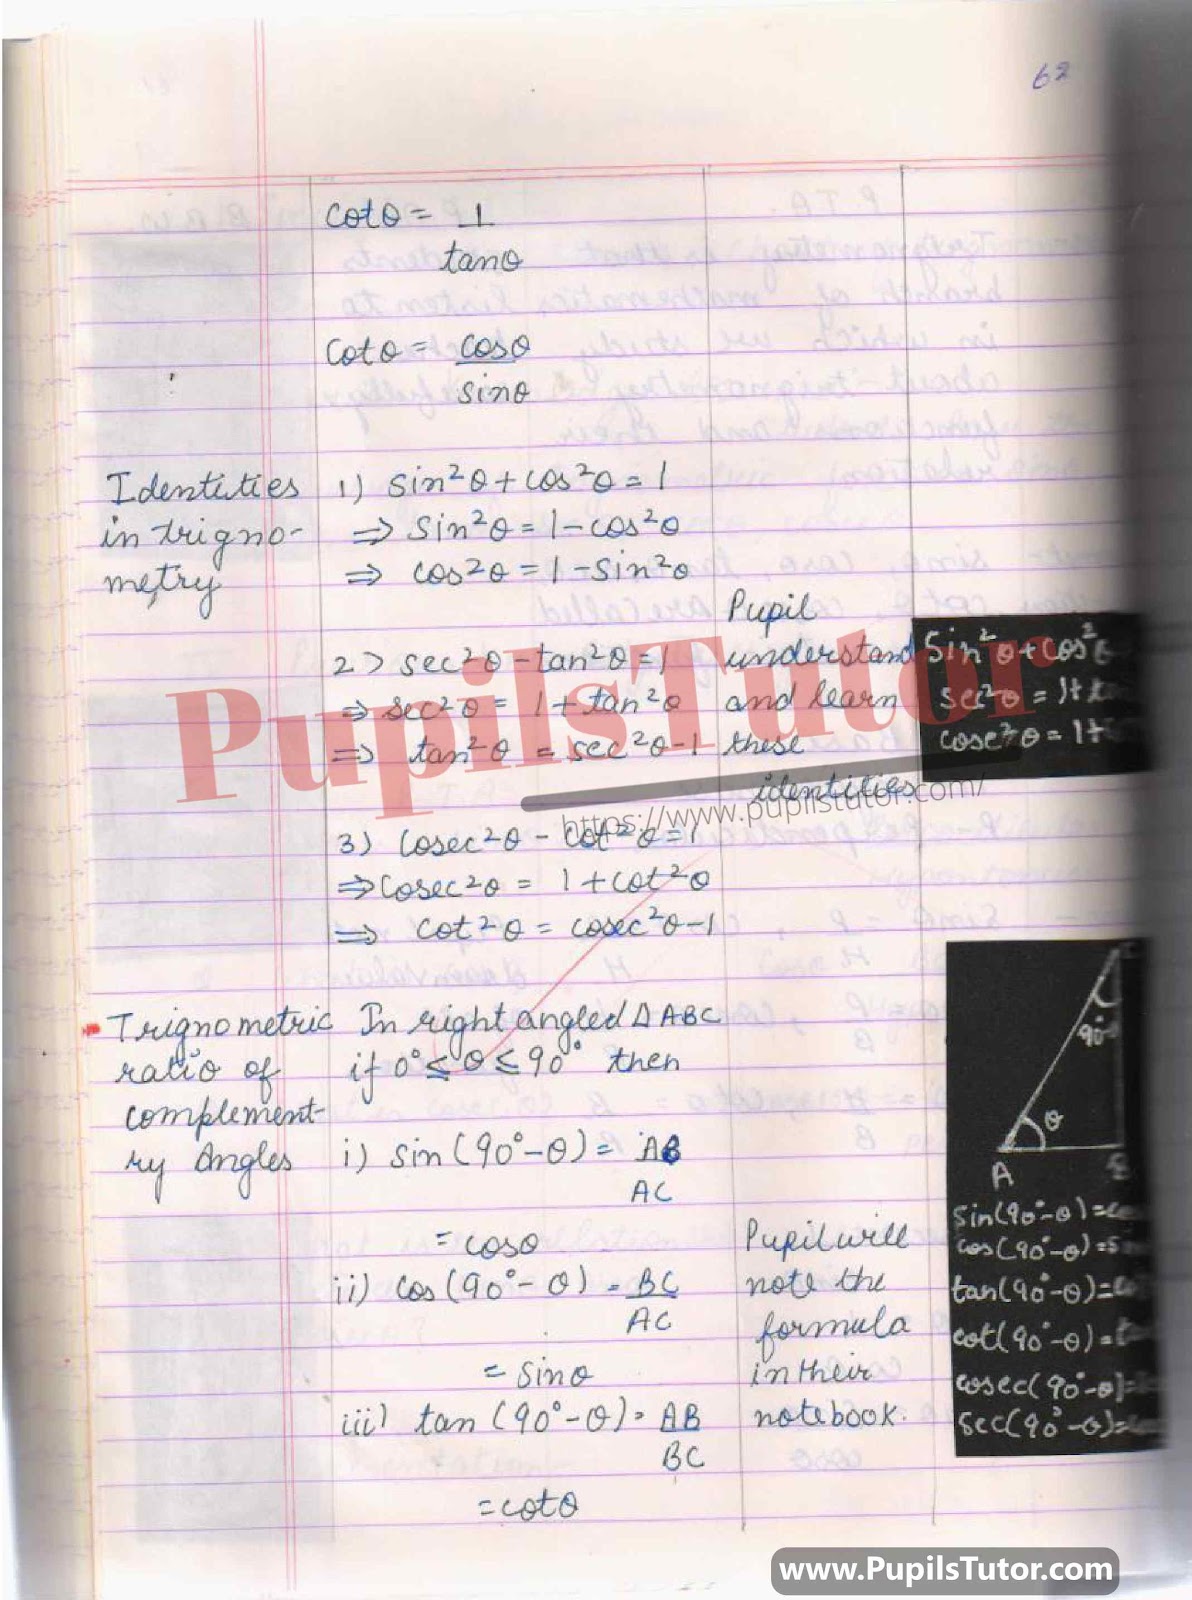 62
cotθ = 1
tanθ
cotθ = cosθ
sinθ
Identities
in trigno-
metry
1) sin²θ + cos²θ = 1
⇒ sin²θ = 1 - cos²θ
⇒ cos²θ = 1 - sin²θ
2) sec²θ - tan²θ = 1
⇒ sec²θ = 1 + tan²θ
⇒ tan²θ = sec²θ - 1
3) cosec²θ - cot²θ = 1
⇒ cosec²θ = 1 + cot²θ
⇒ cot²θ = cosec²θ - 1
Pupil
understand
and learn
these
identities
sin²θ + cos²θ
sec²θ = 1 +
cosec²θ = 1 +
PupilsTutor
https://www.pupilstutor.com/
Trignometric
ratio of
complement-
ry Angles
In right angled ΔABC
if 0° ≤ θ ≤ 90° then
i) sin(90° - θ) = AB
AC
= cosθ
ii) cos(90° - θ) = BC
AC
= sinθ
iii) tan(90° - θ) = AB
BC
= cotθ
Pupil will
note the
formula
in their
notebook.
90°-θ
θ
A
B
sin(90°-θ) =
cos(90°-θ) =
tan(90°-θ) =
cot(90°-θ) =
cosec(90°-θ) =
sec(90°-θ) =
www.PupilsTutor.com